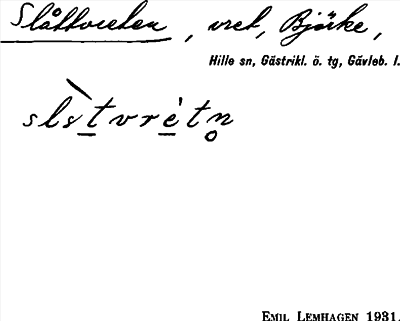 Slåttvreten, vret, Björke,
Hille sn, Gästrikl. ö. tg, Gävleb. l.
slstvrètn̥
EMIL LEMHAGEN 1931.